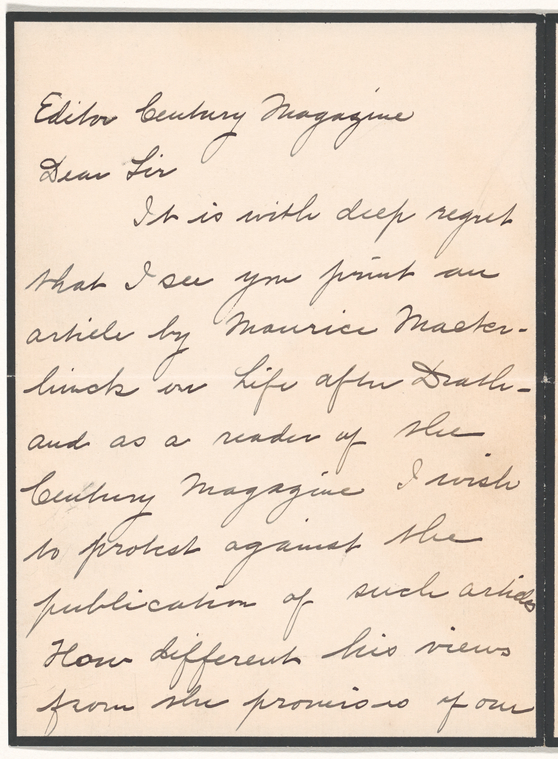 Editor Century Magazine
Dear Sir
It is with deep regret
that I see you print an
article by Maurice Maeter-
linck on Life after Death -
and as a reader of the
Century Magazine I wish
to protest against the
publication of such articles
How different his views
from the promises of our